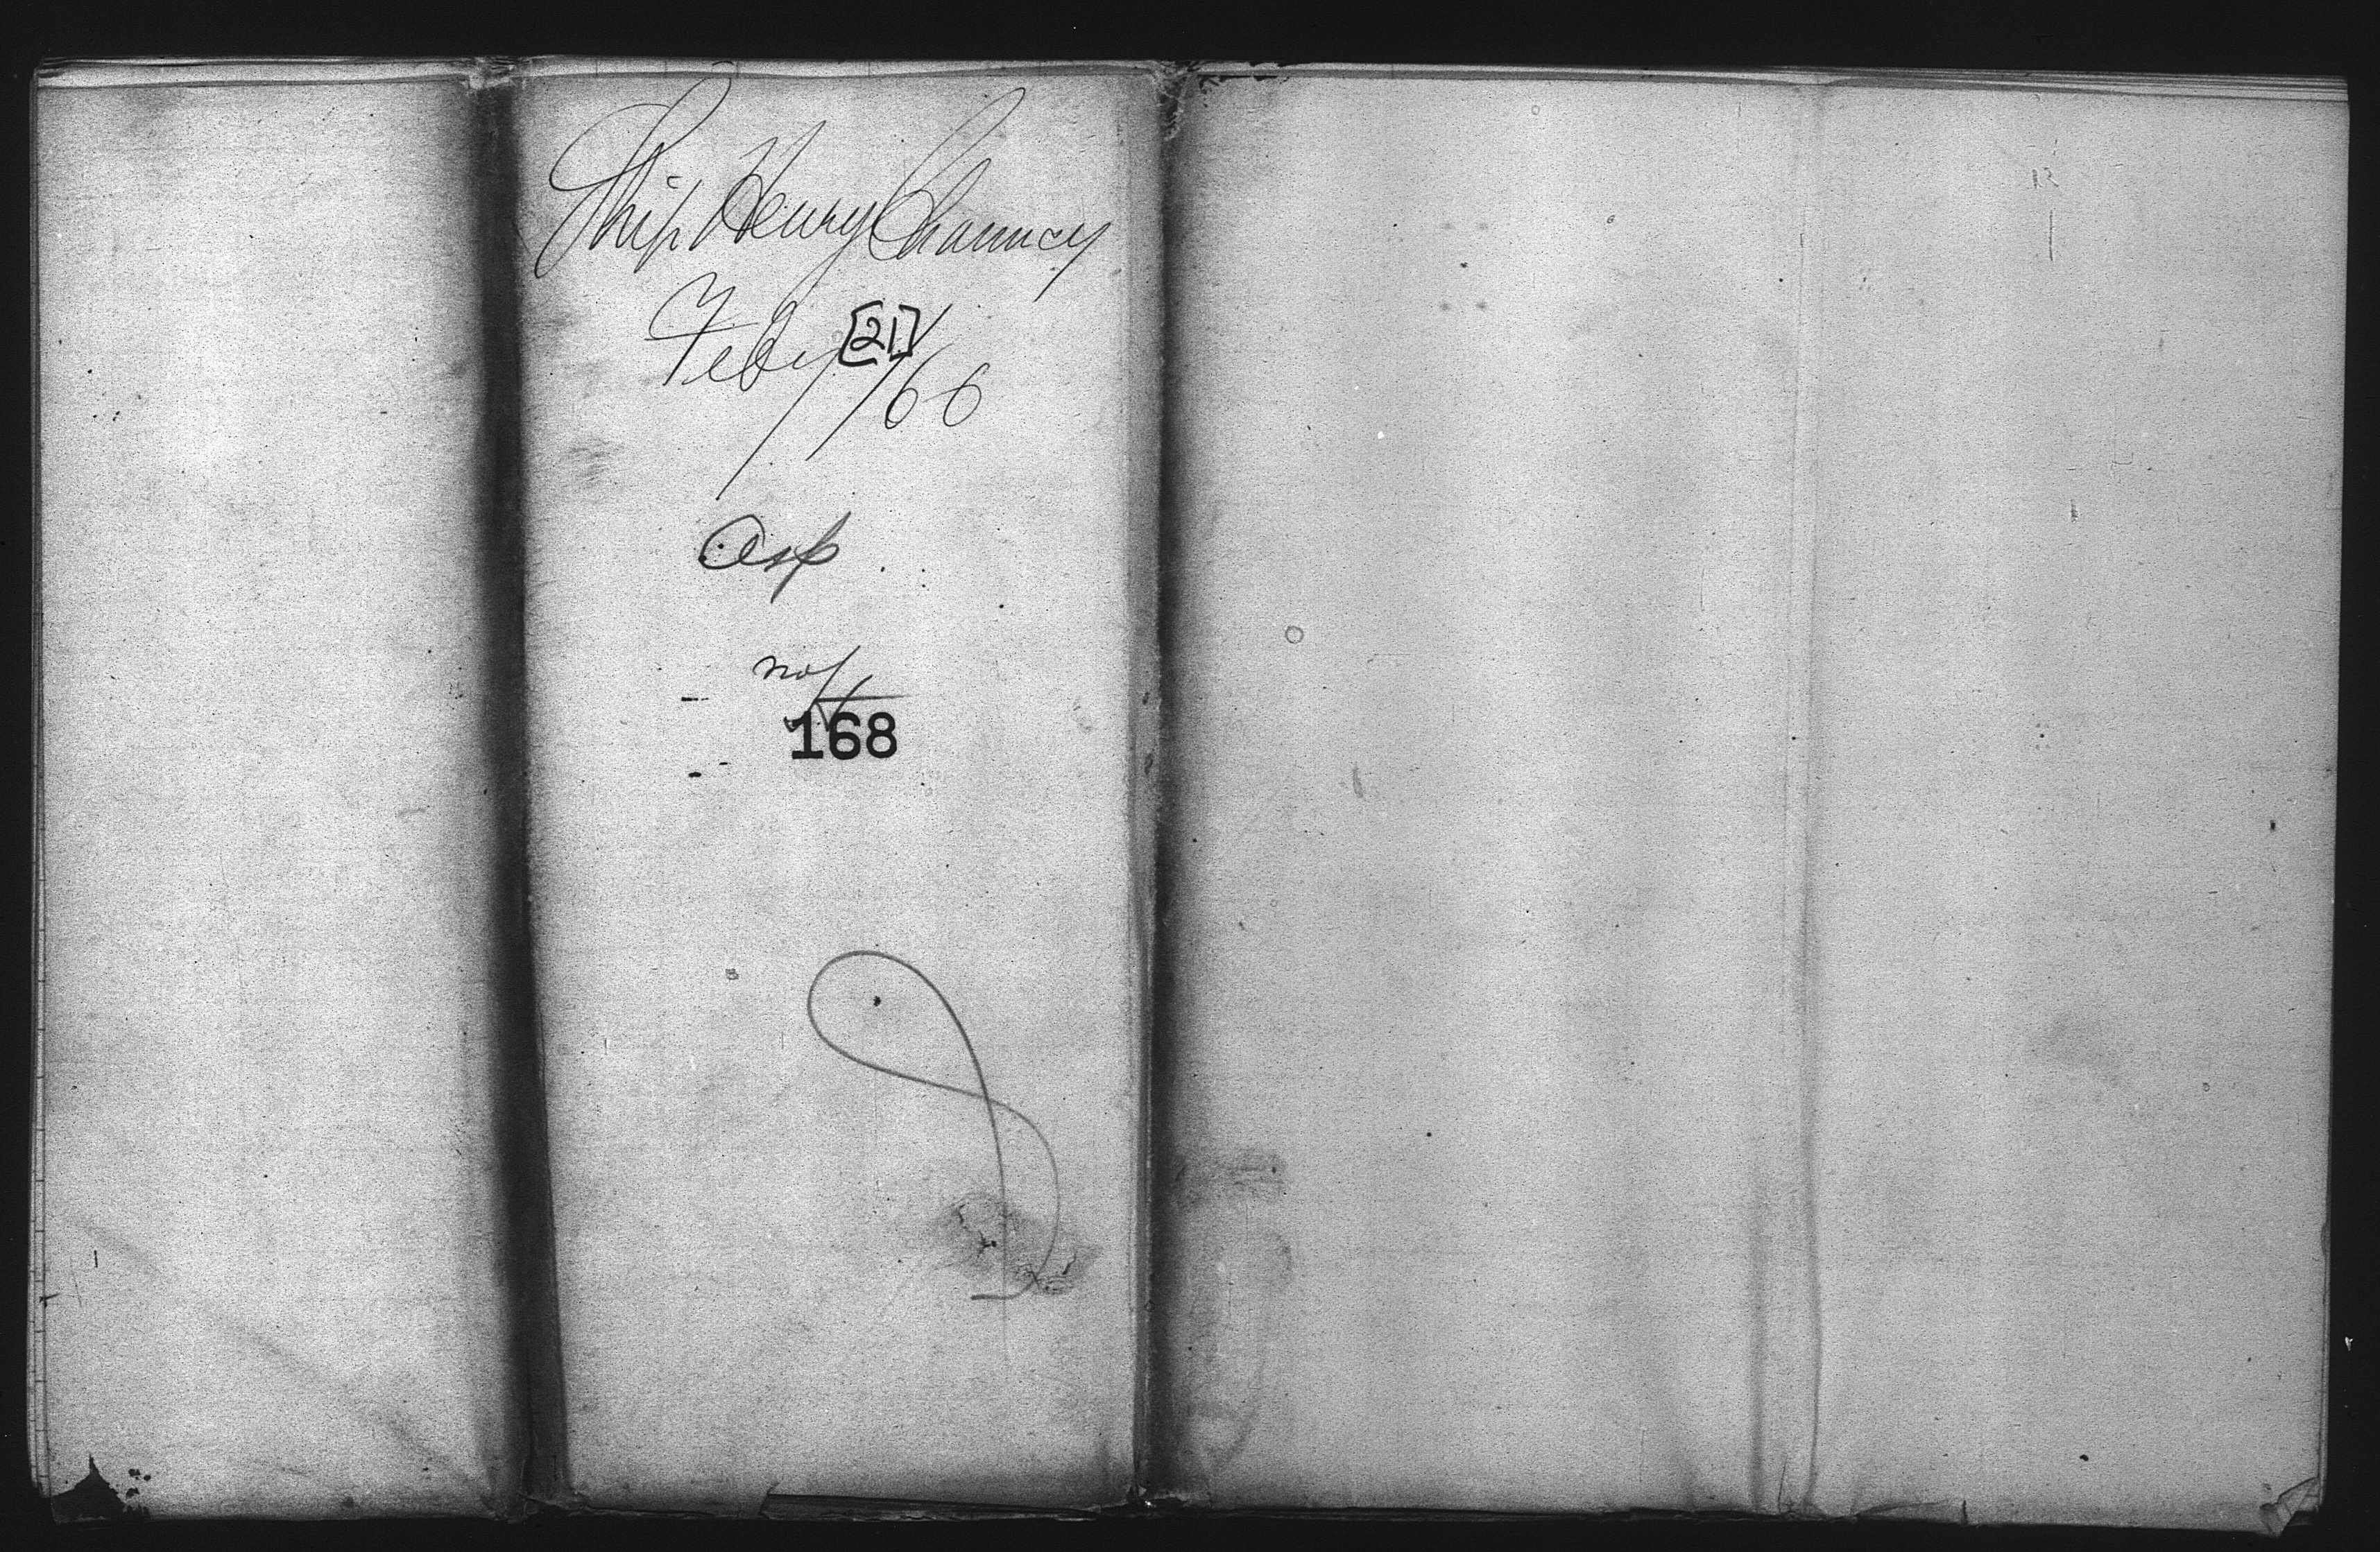 Ship Henry Chauncey
Feby [21] /66
Asp
168